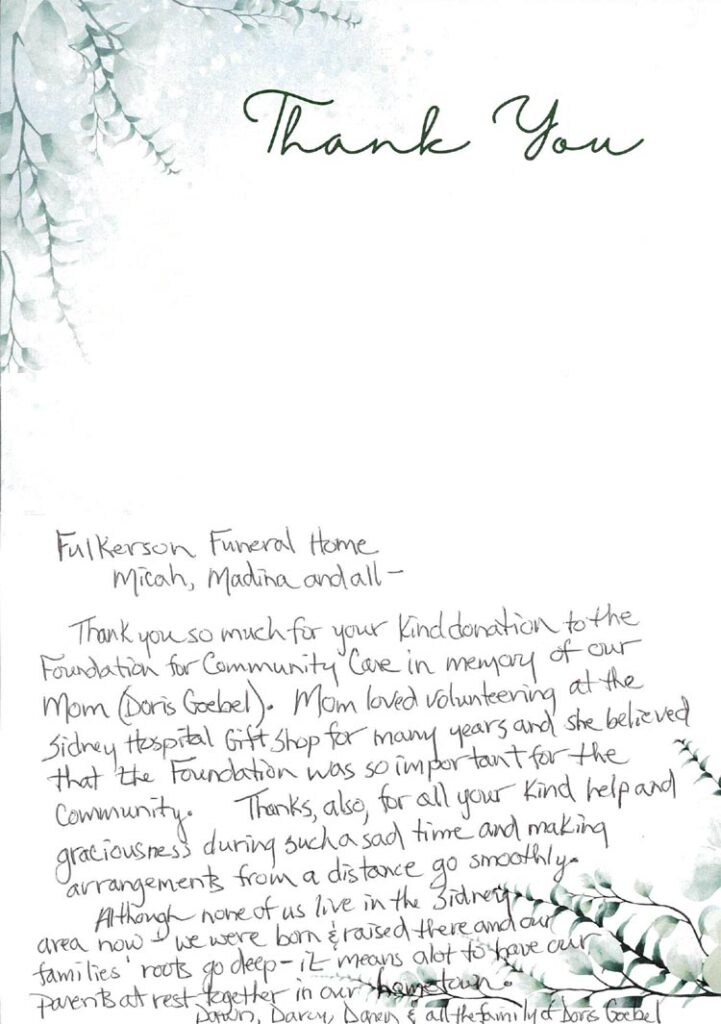 Thank You
Fulkerson Funeral Home
Micah, Madina and all -
Thank you so much for your kind donation to the
Foundation for Community Care in memory of our
Mom (Doris Goebel). Mom loved volunteering at the
Sidney Hospital Gift Shop for many years and she believed
that the Foundation was so important for the
Community. Thanks, also, for all your kind help and
graciousness during such a sad time and making
arrangements from a distance go smoothly.
Although none of us live in the Sidney
area now - we were born & raised there and our
families' roots go deep - it means alot to have our
parents at rest together in our hometown.
Dawn, Darcy, Daren & all the family of Doris Goebel